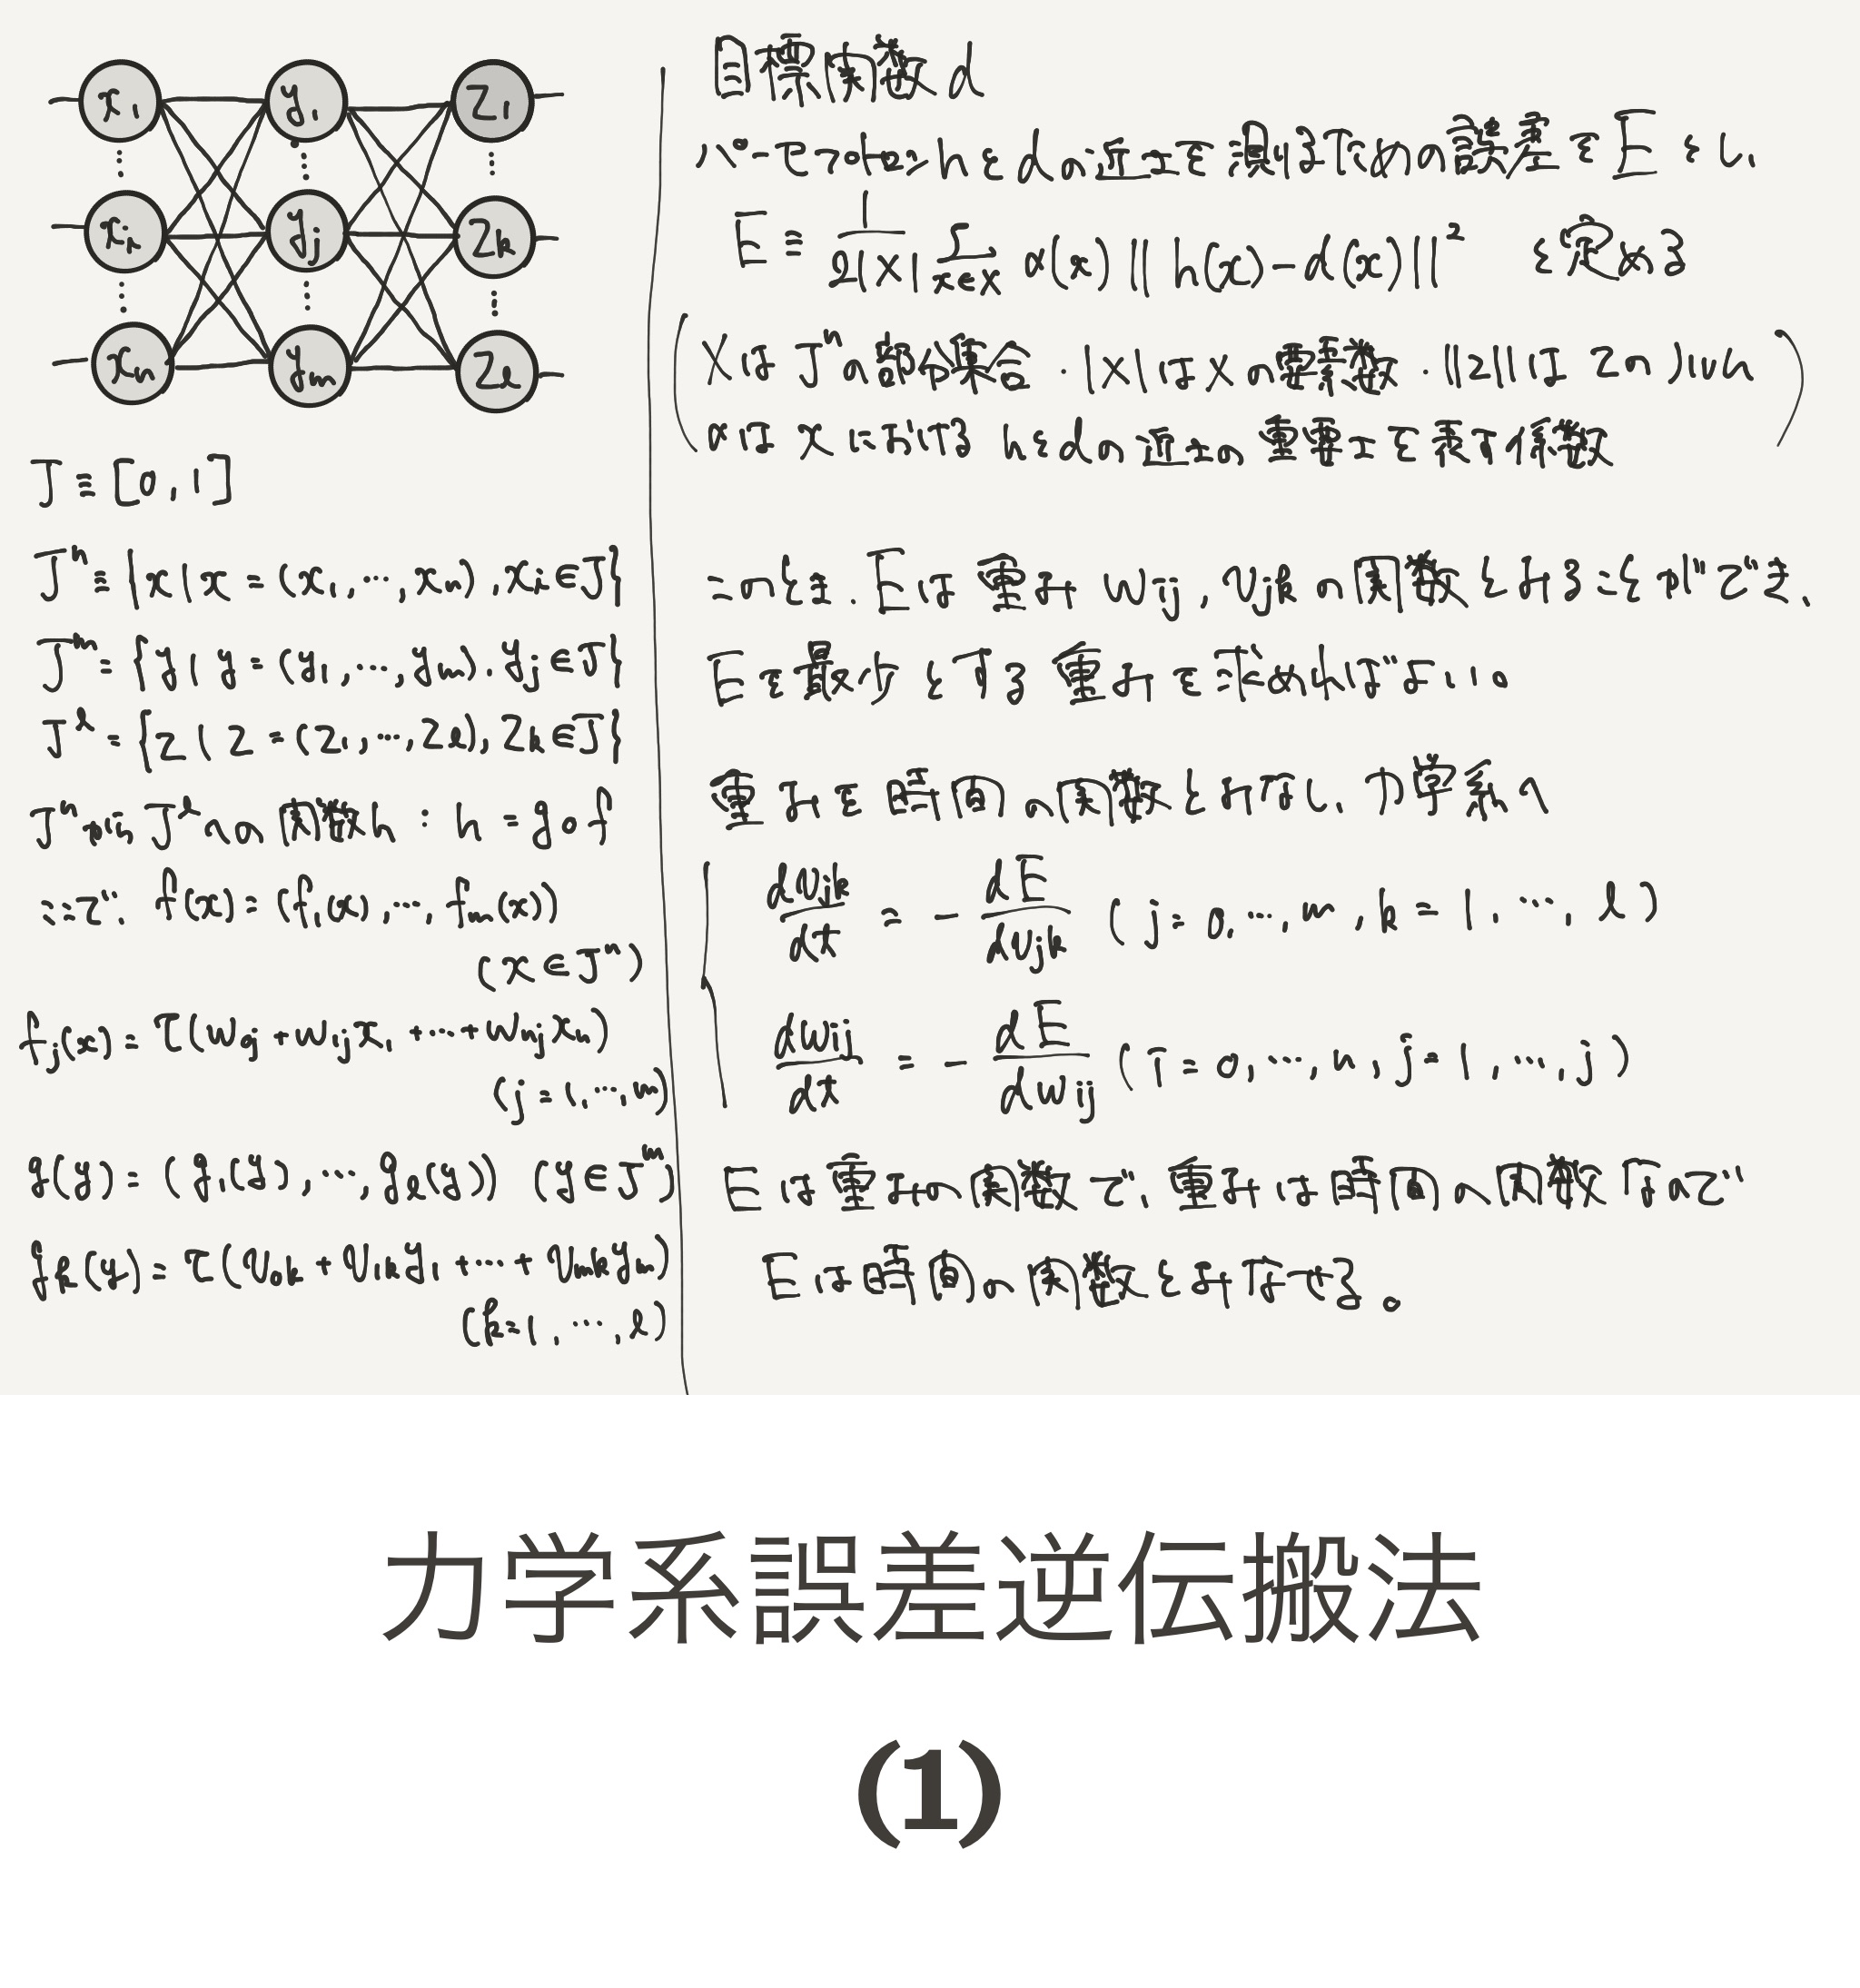 x₁ y₁ z₁
⋮ ⋮ ⋮
xᵢ yⱼ zₖ
⋮ ⋮ ⋮
xₙ yₘ zₗ
J ≡ [0, 1]
Jⁿ ≡ {x | x = (x₁, …, xₙ), xᵢ ∈ J}
Jᵐ = {y | y = (y₁, …, yₘ), yⱼ ∈ J}
Jˡ = {z | z = (z₁, …, zₗ), zₖ ∈ J}
JⁿからJˡへの関数h : h = g∘f
ここで、f(x) = (f₁(x), …, fₘ(x))
(x ∈ Jⁿ)
fⱼ(x) = τ(w₀ⱼ + w₁ⱼx₁ + … + wₙⱼxₙ)
(j = 1, …, m)
g(y) = (g₁(y), …, gₗ(y)) (y ∈ Jᵐ)
gₖ(y) = τ(v₀ₖ + v₁ₖy₁ + … + vₘₖyₘ)
(k = 1, …, l)
目標関数d
パーセプトロンhとdの近さを測るための誤差をEとし、
E ≡ 1/(2|X|) Σ_{x∈X} α(x) ||h(x) − d(x)||² と定める
(XはJⁿの部分集合・|X|はXの要素数・||z||はzのノルム
αはxにおけるhとdの近さの重要さを表す係数)
このとき、Eは重みwᵢⱼ, vⱼₖの関数とみることができ、
Eを最少とする重みを求めればよい。
重みを時間の関数とみなし、力学系へ
dvⱼₖ/dt = − dE/dvⱼₖ (j = 0, …, m, k = 1, …, l)
dwᵢⱼ/dt = − dE/dwᵢⱼ (i = 0, …, n, j = 1, …, j)
Eは重みの関数で、重みは時間の関数なので
Eは時間の関数とみなせる。
力学系誤差逆伝搬法
(1)